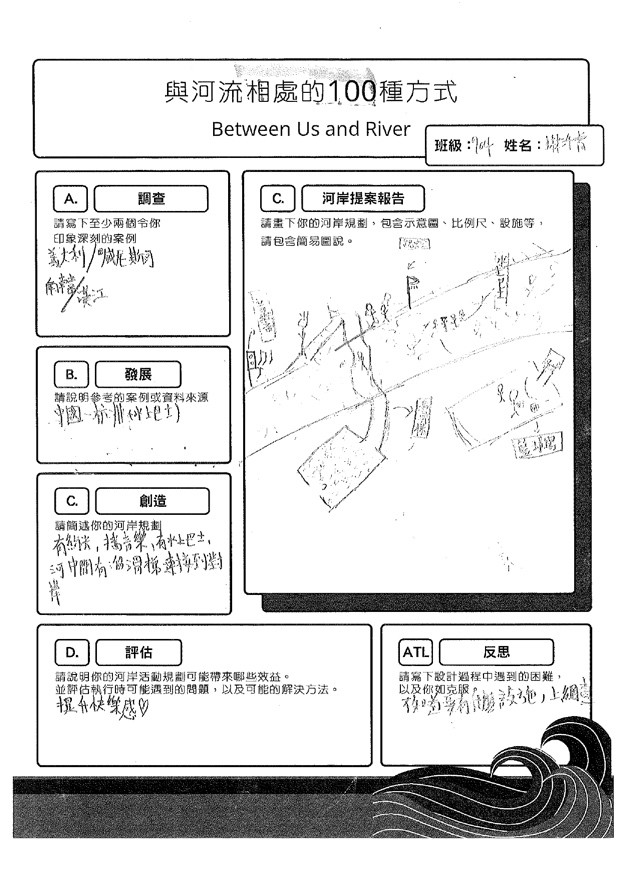 與河流相處的100種方式
Between Us and River
班級：904 姓名：
A. 調查
請寫下至少兩個令你
印象深刻的案例
義大利/威尼斯河
南韓/漢江
B. 發展
請說明參考的案例或資料來源
中國 杭州水上巴士
C. 創造
請簡述你的河岸規劃
有餐廳，播音樂，有水上巴士，
河中間有溜滑梯連接到對
岸
C. 河岸提案報告
請畫下你的河岸規劃，包含示意圖、比例尺、設施等，
請包含簡易圖說。
D. 評估
請說明你的河岸活動規劃可能帶來哪些效益。
並評估執行時可能遇到的問題，以及可能的解決方法。
提升快樂感♡
ATL 反思
請寫下設計過程中遇到的困難，
以及你如克服。
不知道要有什麼設施，上網查